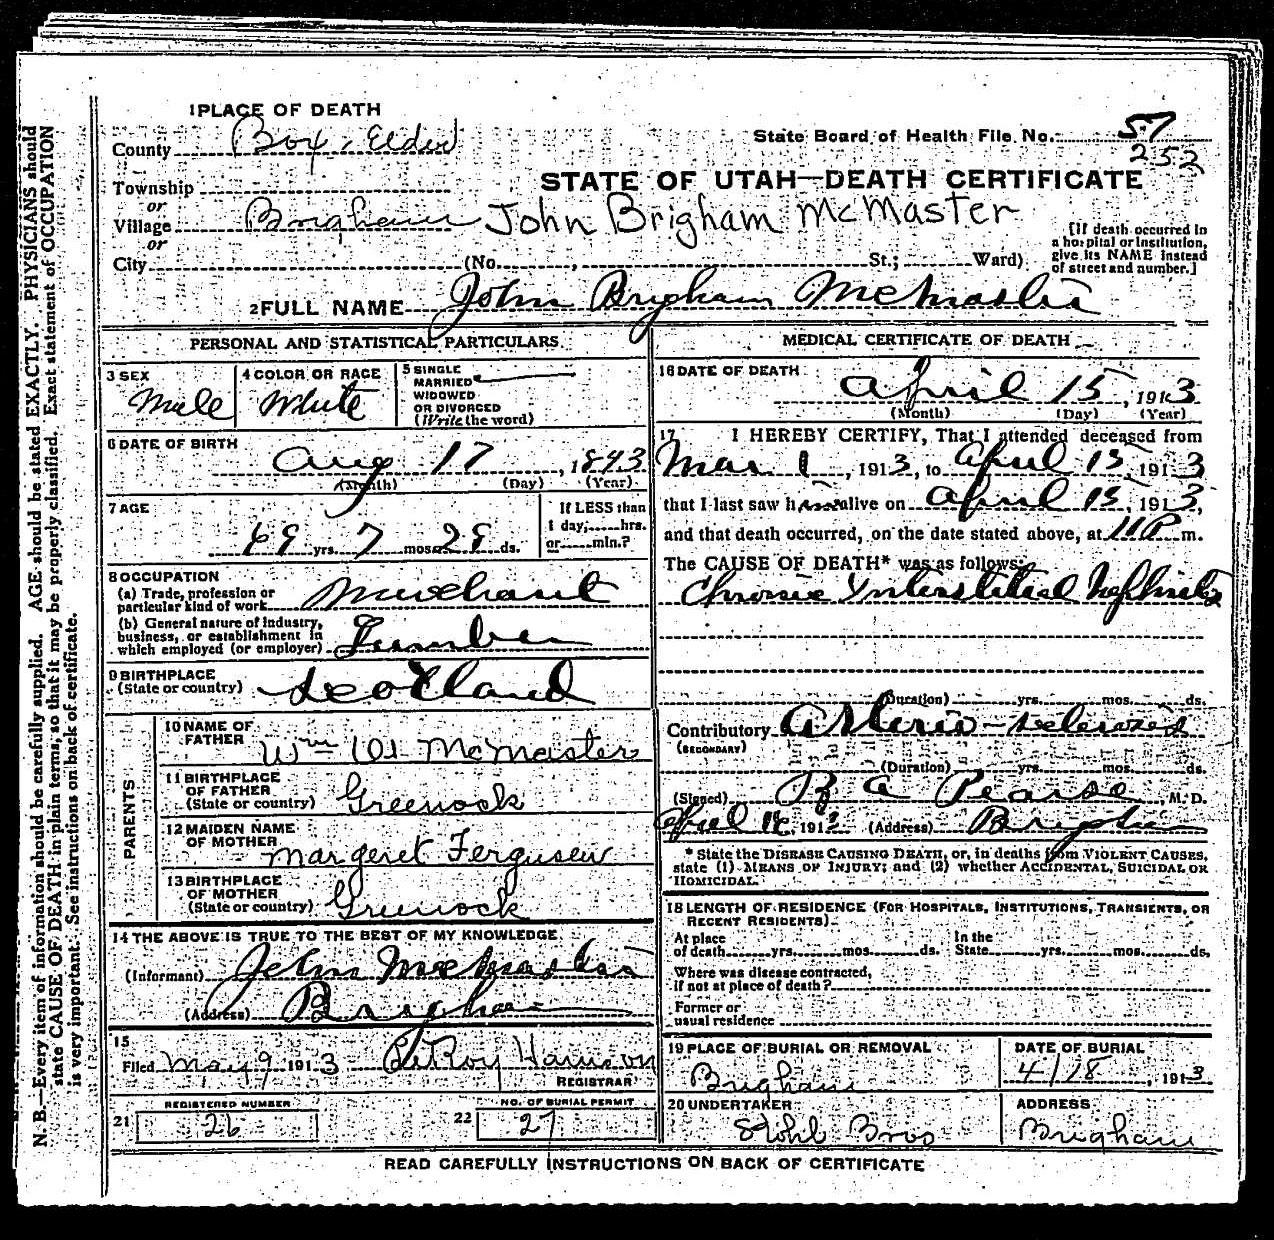 1 PLACE OF DEATH
County Box Elder
State Board of Health File No. 57
252
Township
or
Village Brigham
or
City
STATE OF UTAH—DEATH CERTIFICATE
John Brigham McMaster
(No. , St.; Ward)
[If death occurred in
a hospital or institution,
give its NAME instead
of street and number.]
2 FULL NAME John Brigham McMaster
PERSONAL AND STATISTICAL PARTICULARS
3 SEX
Male
4 COLOR OR RACE
White
5 SINGLE
MARRIED
WIDOWED
OR DIVORCED
(Write the word)
6 DATE OF BIRTH
Aug 17, 1843
(Month) (Day) (Year)
7 AGE
69 yrs. 7 mos. 29 ds.
If LESS than
1 day, hrs.
or min.?
8 OCCUPATION
(a) Trade, profession or
particular kind of work Merchant
(b) General nature of industry,
business, or establishment in
which employed (or employer) Lumber
9 BIRTHPLACE
(State or country) Scotland
PARENTS
10 NAME OF
FATHER Wm McMaster
11 BIRTHPLACE
OF FATHER
(State or country) Greenock
12 MAIDEN NAME
OF MOTHER Margeret Ferguson
13 BIRTHPLACE
OF MOTHER
(State or country) Greenock
14 THE ABOVE IS TRUE TO THE BEST OF MY KNOWLEDGE
(Informant) John McMaster
(Address) Brigham
15
Filed May 9 1913 LeRoy Harrison
REGISTRAR
REGISTERED NUMBER
21 26
NO. OF BURIAL PERMIT
22 27
MEDICAL CERTIFICATE OF DEATH
16 DATE OF DEATH
April 15, 1913
(Month) (Day) (Year)
17 I HEREBY CERTIFY, That I attended deceased from
Mar 1, 1913, to April 15, 1913
that I last saw him alive on April 15, 1913,
and that death occurred, on the date stated above, at 11 P m.
The CAUSE OF DEATH* was as follows:
Chronic Interstitial Nephritis
(Duration) yrs. mos. ds.
Contributory Arterio-sclerosis
(SECONDARY)
(Duration) yrs. mos. ds.
(Signed) R A Pearse, M. D.
April 1913 (Address) Brigham
* State the DISEASE CAUSING DEATH, or, in deaths from VIOLENT CAUSES,
state (1) MEANS OF INJURY; and (2) whether ACCIDENTAL, SUICIDAL OR
HOMICIDAL.
18 LENGTH OF RESIDENCE (FOR HOSPITALS, INSTITUTIONS, TRANSIENTS, OR
RECENT RESIDENTS)
At place
of death yrs. mos. ds.
In the
State yrs. mos. ds.
Where was disease contracted,
if not at place of death?
Former or
usual residence
19 PLACE OF BURIAL OR REMOVAL
Brigham
DATE OF BURIAL
4/18, 1913
20 UNDERTAKER
Stohl Bros
ADDRESS
Brigham
READ CAREFULLY INSTRUCTIONS ON BACK OF CERTIFICATE
N. B.—Every item of information should be carefully supplied. AGE should be stated EXACTLY. PHYSICIANS should
state CAUSE OF DEATH in plain terms, so that it may be properly classified. Exact statement of OCCUPATION
is very important. See instructions on back of certificate.